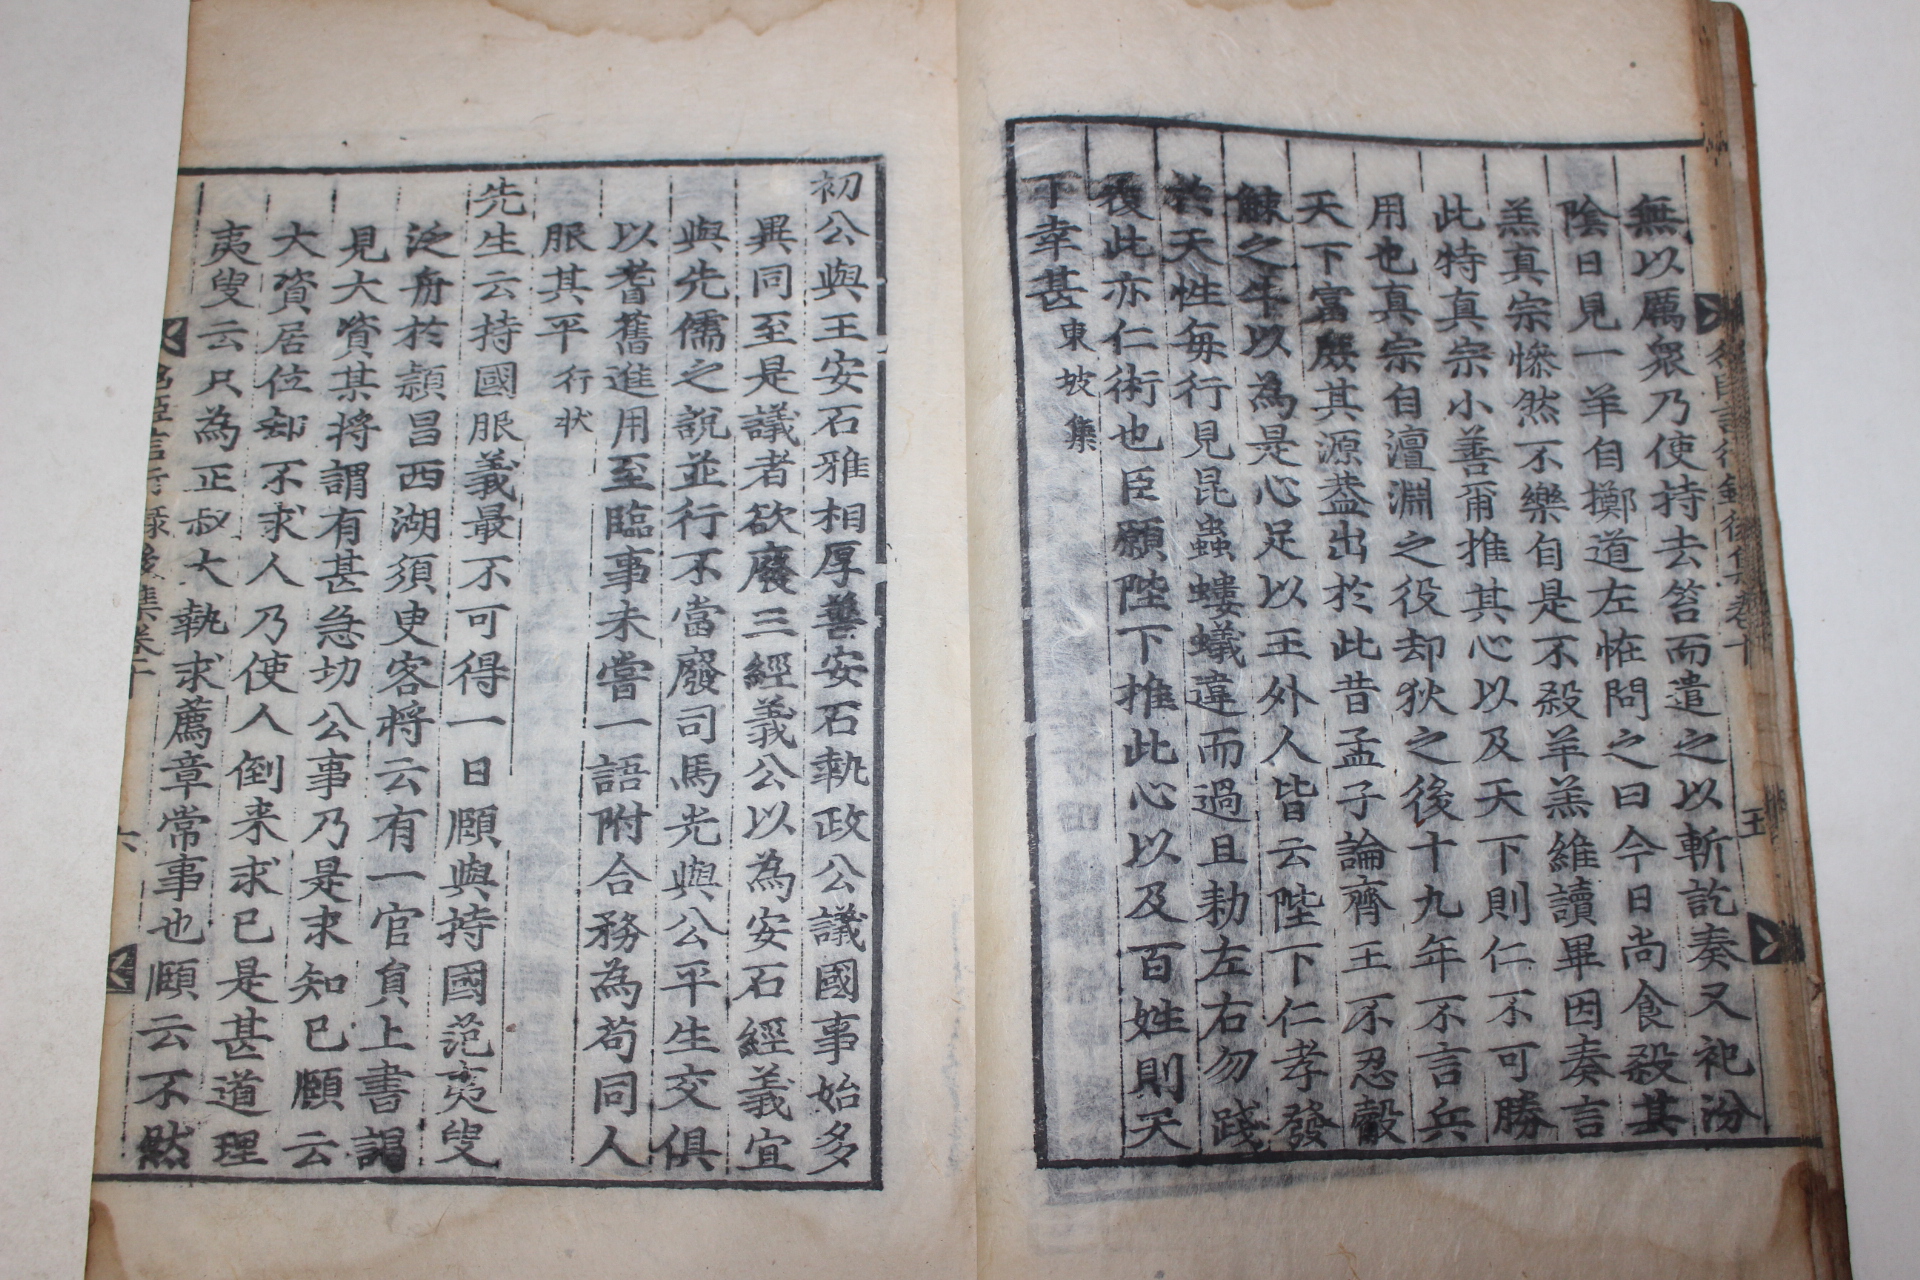 無以厲衆乃使持去笞而遣之以斬訖奏又祀汾
陰日見一羊自擲道左怪問之曰今日尚食殺其
羔真宗慘然不樂自是不殺羊羔維讀畢因奏言
此特真宗小善甭推其心以及天下則仁不可勝
用也真宗自澶淵之役却狄之後十九年不言兵
天下富殷其源葢出於此昔孟子論齊王不忍觳
觫之牛以為是心足以王外人皆云陛下仁孝發
於天性每行見昆蟲螻蟻違而過且勑左右勿踐
履此亦仁術也臣願陛下推此心以及百姓則天
下幸甚 東坡集
初公與王安石雅相厚善安石執政公議國事始多
異同至是議者欲廢三經義公以為安石經義宜
與先儒之說並行不當廢司馬光與公平生交俱
以耆舊進用至臨事未嘗一語附合務為苟同人
服其平 行状
先生云持國服義最不可得一日頤與持國范夷叟
泛舟於潁昌西湖須臾客将云有一官員上書謁
見大資某将謂有甚急切公事乃是求知已頤云
大資居位却不求人乃使人倒来求已是甚道理
夷叟云只為正叔大執求薦章常事也頤云不然
名臣言行録後集卷十
六